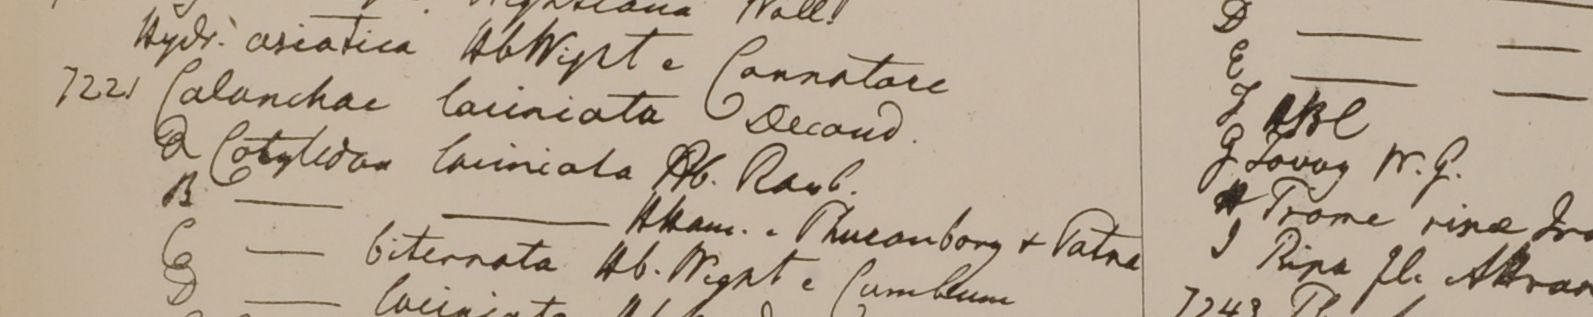 Wightiana Wall.
Hydr. asiatica HbWight e Connatore
7221 Calanchae laciniata Decand.
a Cotyledon laciniata Hb. Roxb.
B — — HHam. e Thuranbary & Patna
C — biternata Hb. Wight e Cumbum
D — laciniata
D — —
E — —
F HBC
G Tovoy W. G.
H Prome ripae
I Ripa fl.
7243